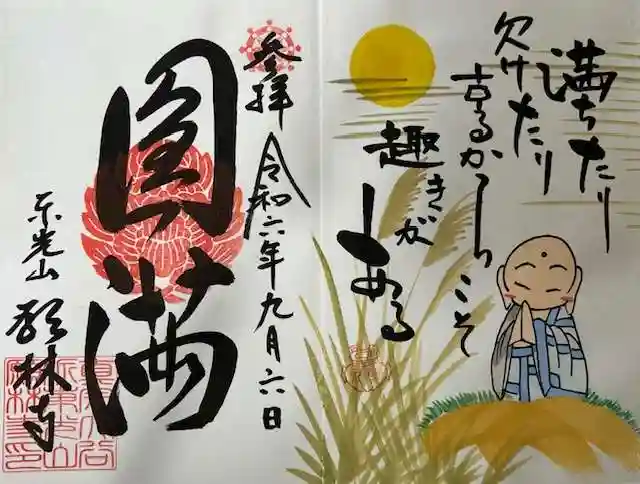 満ちたり
欠けたり
するからこそ
趣きが
ある
参拝
令和六年九月六日
圓満
東光山
林寺